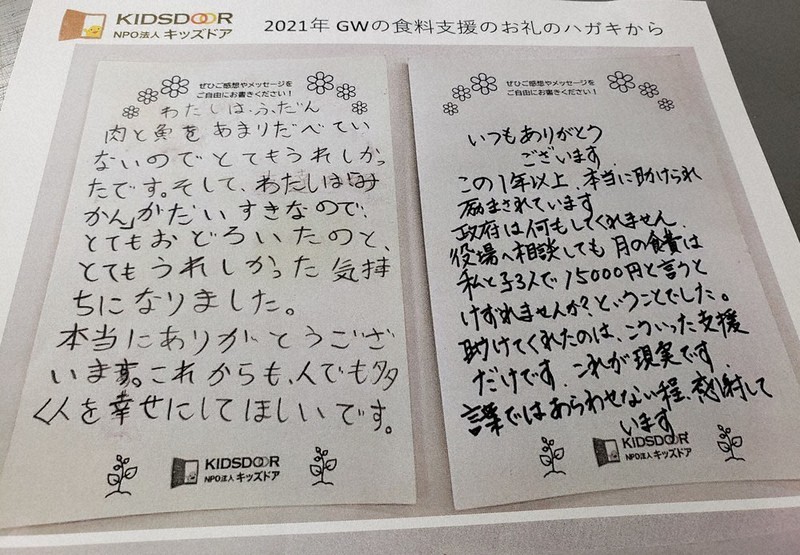 KIDSDOOR
NPO法人 キッズドア
2021年 GWの食料支援のお礼のハガキから
ぜひご感想やメッセージを
ご自由にお書きください！
わたしは、ふだん
肉と魚をあまりたべてい
ないのでとてもうれしかっ
たです。そして、わたしは「み
かん」がだいすきなので、
とてもおどろいたのと、
とてもうれしかった気持
ちになりました。
本当にありがとうござい
います。これからも、人でも多
く人を幸せにしてほしいです。
KIDSDOOR
NPO法人 キッズドア
ぜひご感想やメッセージを
ご自由にお書きください！
いつもありがとう
ございます
この1年以上、本当に助けられ
励まされています
政府は何もしてくれません
役場へ相談しても 月の食費は
私と子3人で15000円と言うと
けずれませんか？ということでした。
助けてくれたのは、こういった支援
だけです これが現実です
言葉ではあらわせない程、感謝して
います
KIDSDOOR
NPO法人 キッズドア